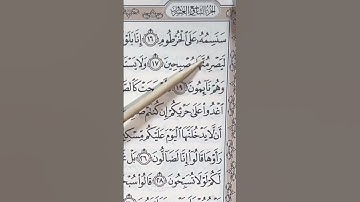 الجزء التاسع والعشرون
سَنَسِمُهُۥ عَلَى ٱلْخُرْطُومِ ١٦ إِنَّا بَلَوْ
لَيَصْرِمُنَّهَا مُصْبِحِينَ ١٧ وَلَا يَسْ
وَهُمْ نَآئِمُونَ ١٩ فَأَصْبَحَتْ كَٱلصَّ
ٱغْدُوا۟ عَلَىٰ حَرْثِكُمْ إِن كُنتُمْ صَ
أَن لَّا يَدْخُلَنَّهَا ٱلْيَوْمَ عَلَيْكُم مِّسْكِ
رَأَوْهَا قَالُوٓا۟ إِنَّا لَضَآلُّونَ ٢٦ بَلْ نَحْ
لَّكُمْ لَوْلَا تُسَبِّحُونَ ٢٨ قَالُوا۟ سُبْحَ